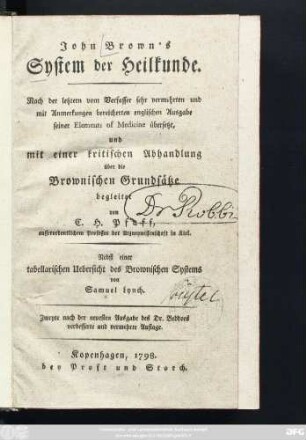 John Brown's
System der Heilkunde.
Nach der letztern vom Verfasser sehr vermehrten und
mit Anmerkungen bereicherten englischen Ausgabe
seiner Elements of Medicine übersetzt,
und
mit einer kritischen Abhandlung
über die
Brownischen Grundsätze
begleitet
von
C. H. Pfaff,
ausserordentlichem Professor der Arzneywissenschaft in Kiel.
Dr Robbi
Nebst einer
tabellarischen Uebersicht des Brownischen Systems
von
Samuel Lynch.
Zweyte nach der neuesten Ausgabe des Dr. Beddoes
verbesserte und vermehrte Auflage.
Kopenhagen, 1798.
bey Proft und Storch.